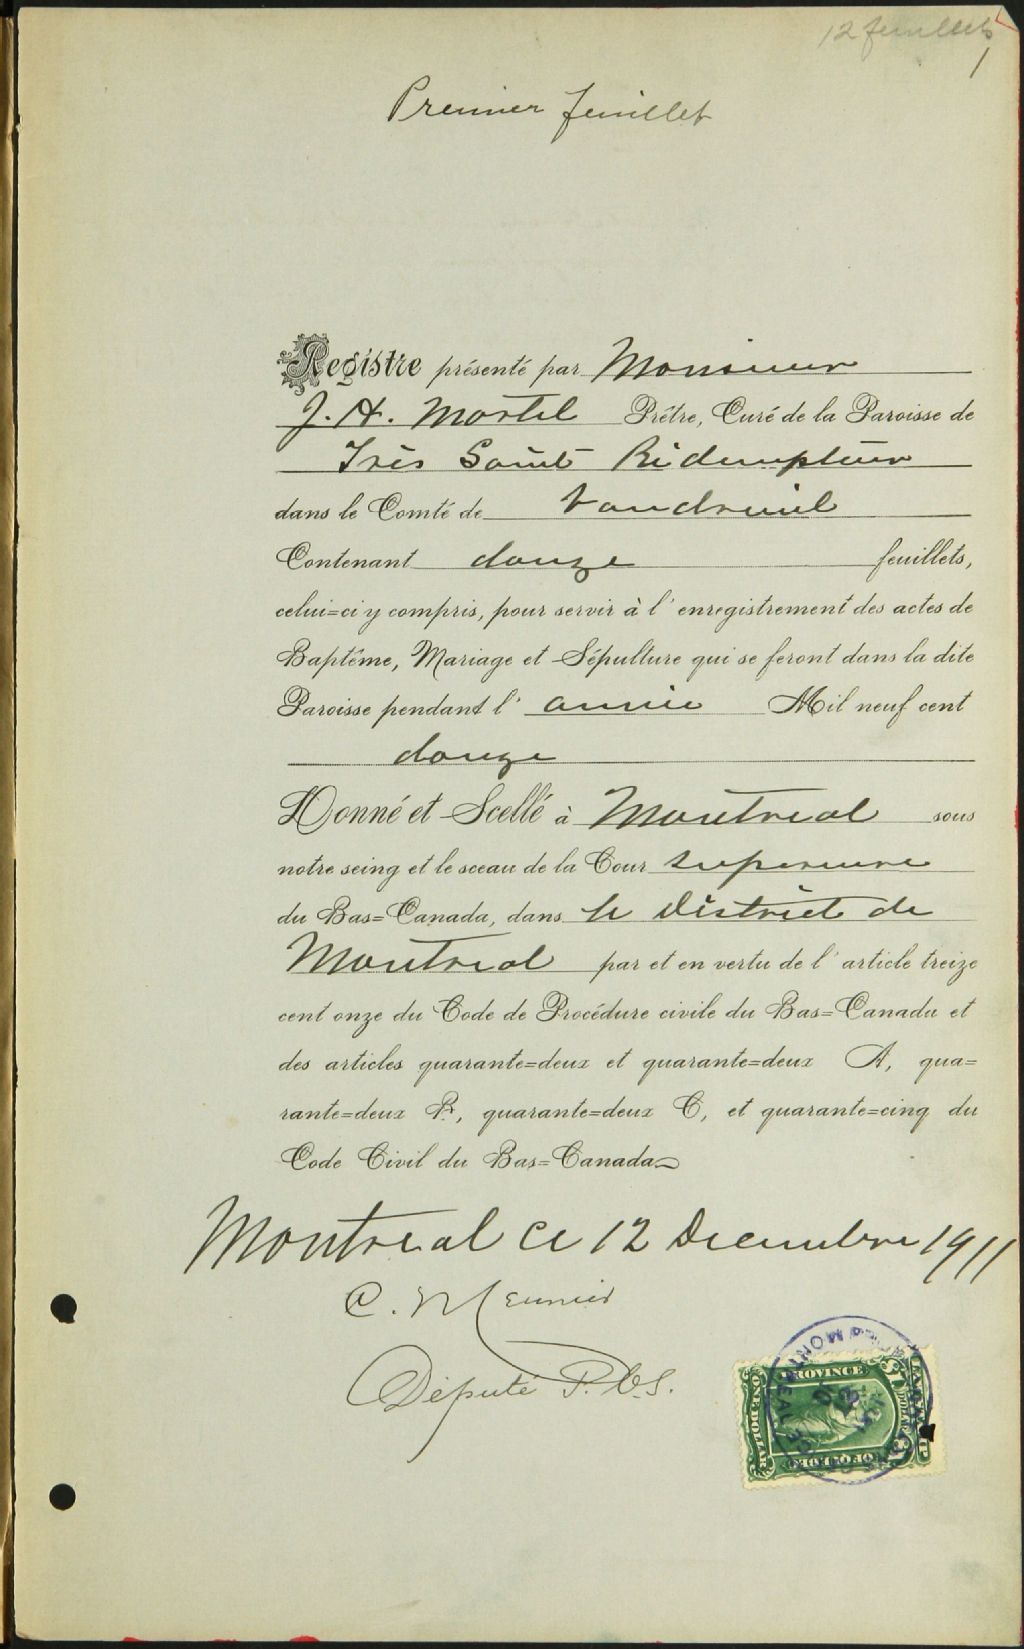 12 feuillets
1
Premier feuillet
Registre présenté par Monsieur
J. A. Martel Prêtre, Curé de la Paroisse de
Très Saint Rédempteur
dans le Comté de Vaudreuil
Contenant douze feuillets,
celui=ci y compris, pour servir à l'enregistrement des actes de
Baptême, Mariage et Sépulture qui se feront dans la dite
Paroisse pendant l'année Mil neuf cent
douze
Donné et Scellé à Montreal sous
notre seing et le sceau de la Cour superieure
du Bas=Canada, dans le District de
Montreal par et en vertu de l'article treize
cent onze du Code de Procédure civile du Bas=Canada et
des articles quarante=deux et quarante=deux A, qua=
rante=deux B, quarante=deux C, et quarante=cinq du
Code Civil du Bas=Canada
Montreal ce 12 Decembre 1911
C. Meunier
Député P. C. S.
PROVINCE
OF QUEBEC
ONE DOLLAR
MONTREAL